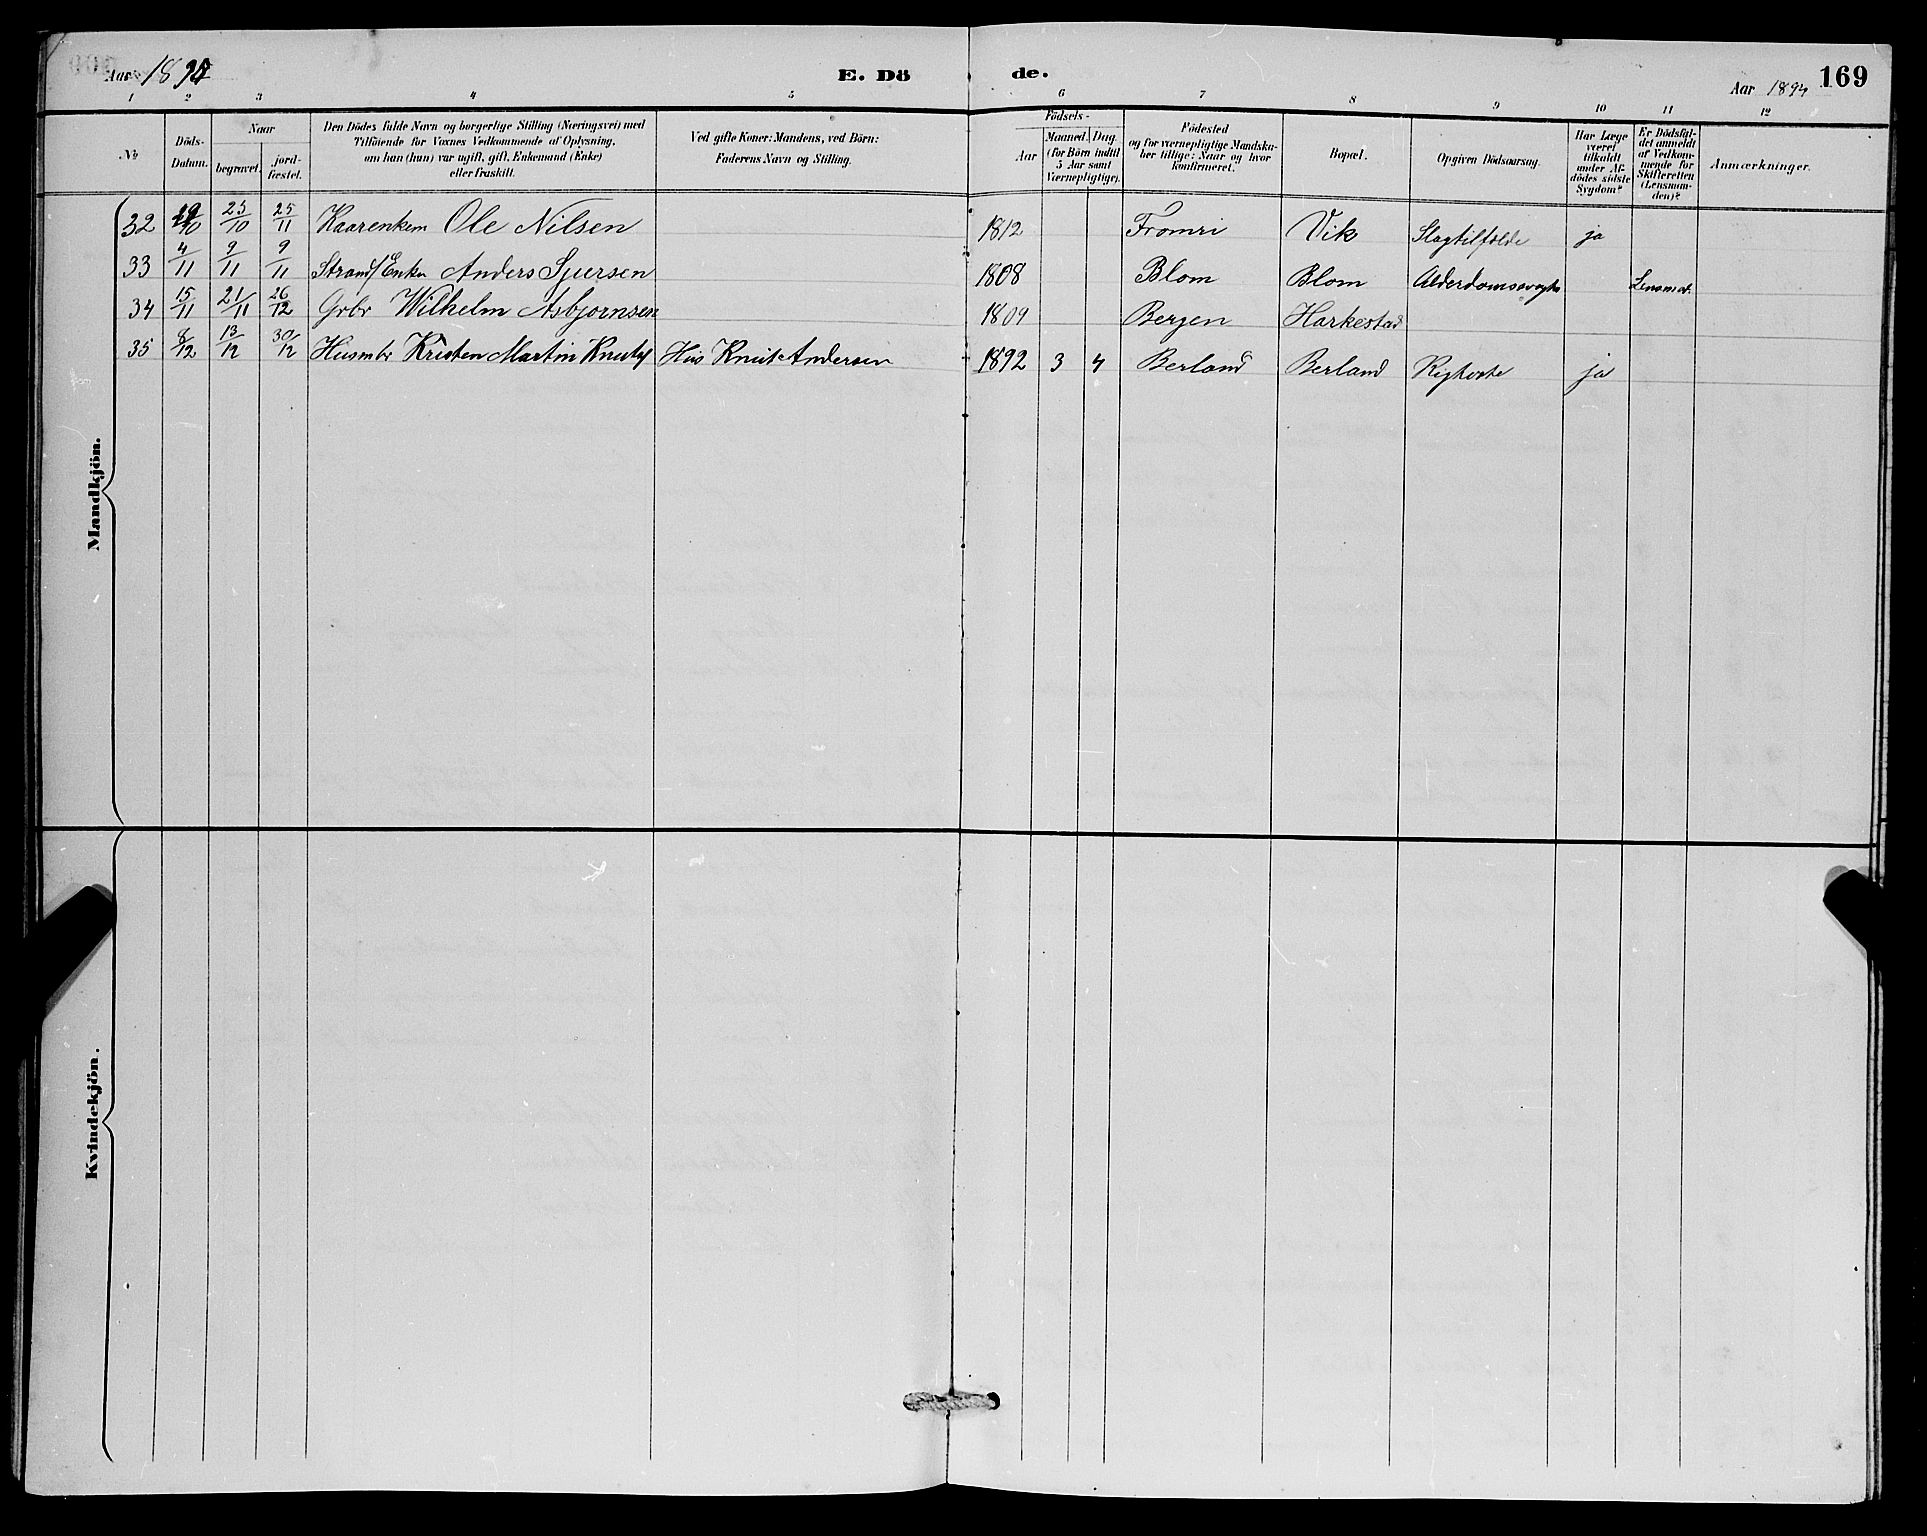 Aar 1894
E. Dö
de.
Aar 1894
169
1 2 3 4 5 6 7 8 9 10 11 12
No
Döds-Datum.
Naar
begravet.
jord-fæstet.
Den Dödes fulde Navn og borgerlige Stilling (Næringsvei) med
Tilföiende for Voxnes Vedkommende af Oplysning,
om han (hun) var ugift, gift, Enkemand (Enke)
eller fraskilt.
Ved gifte Koner: Mandens, ved Börn:
Faderens Navn og Stilling.
Födsels-
Aar
Maaned. Dag.
(for Börn indtil
5 Aar samt
Værnepligtige).
Födested
og for værnepligtige Mandska-
ber tillige: Naar og hvor
konfirmeret.
Bopæl.
Opgiven Dödsaarsag.
Har Læge
været
tilkaldt
under Af-
dödes sidste
Sygdom?
Er Dödsfal-
det anmeldt
af Vedkom-
mende for
Skifteretten
(Lensman-
den)?
Anmærkninger.
Mandkjön.
32 19/10 25/10 25/11 Kaarenkem Ole Nilsen 1812 Fromri Vik Slagtilfælde ja
33 4/11 9/11 9/11 Strands Enkm Anders Sjursen 1808 Blom Blom Alderdomssvagh Lensmd.
34 15/11 21/11 26/12 Grbr Wilhelm Asbjørnsen 1809 Bergen Harkestad
35 8/12 13/12 30/12 Husmbr Kristen Martin Knuts Hus Knut Andersen 1892 3 4 Berland Berland ja
Kvindekjön.